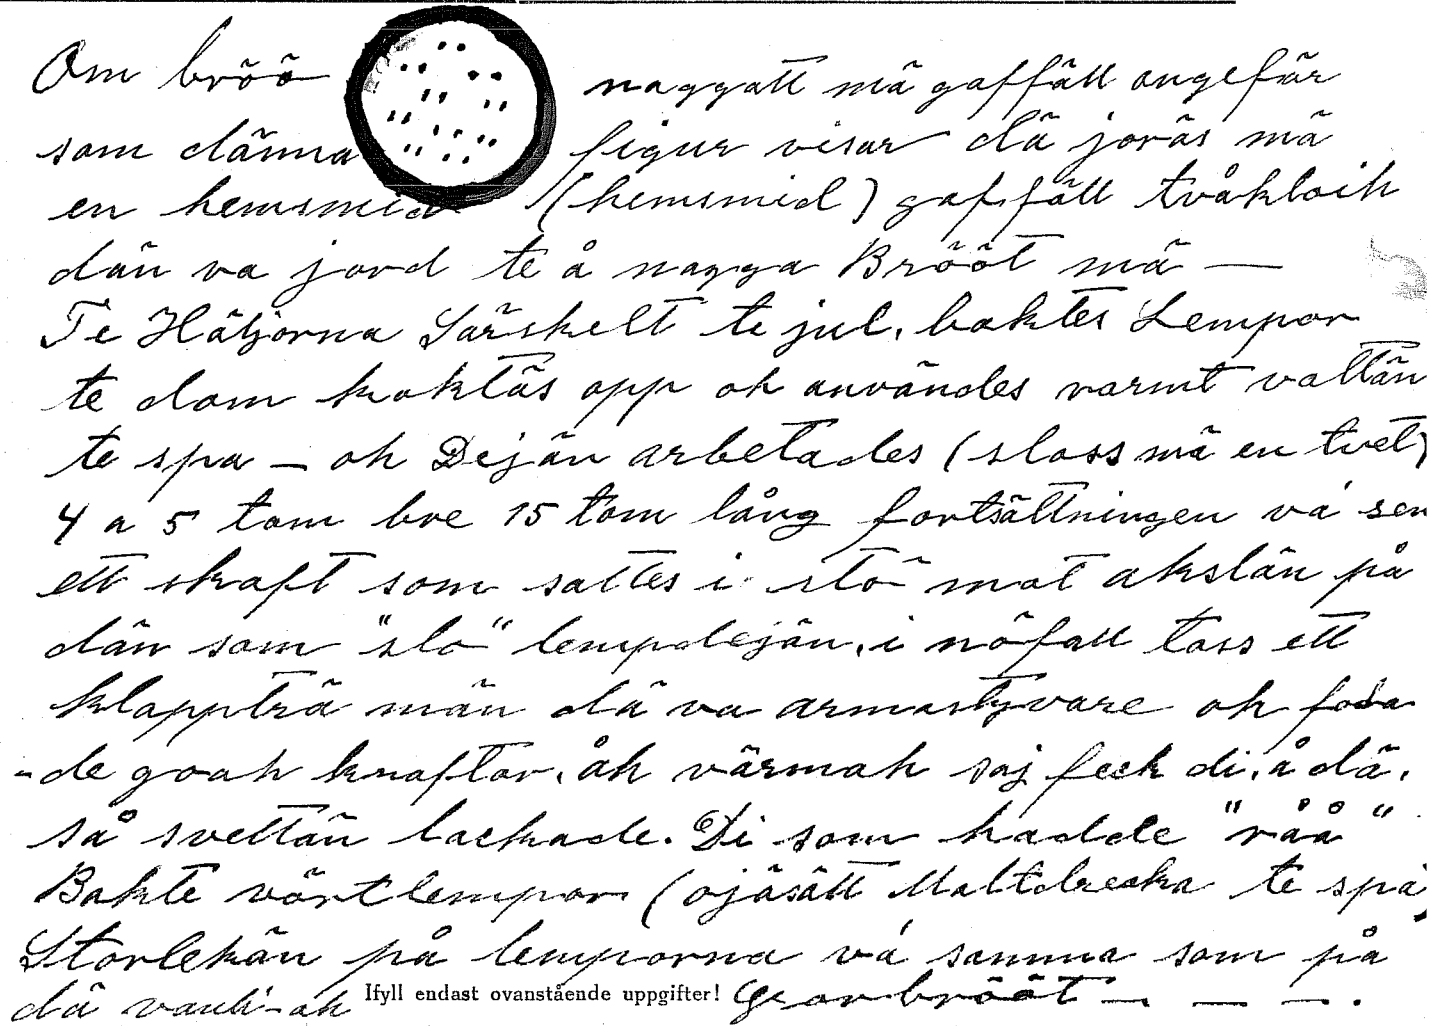 Om bröö naggatt mä gaffätt ongefär
som dänna figur visar dä joräs mä
en hemsmid (hemsmid) gaffäll tvåkloih
dän va jord te å nagga Brööt mä —
Te Hätjorna Särskelt te jul, baktes Lempor
te dom koktäs opp oh användes varmt vattän
te spa — oh Dejän arbetades (sloss mä en tvet)
4 a 5 tom bre 15 tom lång fortsättningen vá sen
ett skaft som sattes i stö mot akslän på
dän som "slo" lempdejän, i nöfall toss ett
klappträ män dä va armastyvare oh
-de goah kraftor, åh värmah säj feck di, å dä,
så svettän lackade. Di som hadde "råå"
Bakte vörtlempor (ojäsätt Maltdrecka te spá)
Storlekän på lemporna vá samma som på
dä vanli-ah Grovbrööt — — — .
Ifyll endast ovanstående uppgifter!